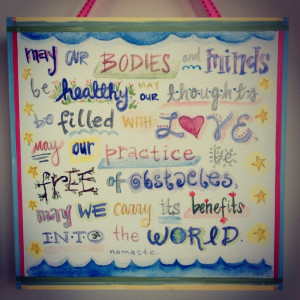 may our BODIES and minds
be healthy MAY our thoughts
be filled WITH LOVE,
may our practice be
FREE of obstacles,
may WE carry its benefits
INTO the WORLD.
namaste.